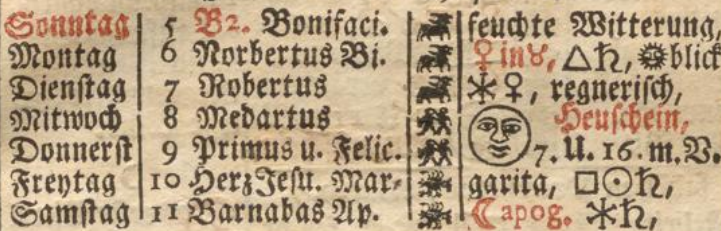 Sonntag 5 B2. Bonifaci. feuchte Witterung,
Montag 6 Norbertus Bi. ♀ in ♉, △♄, blick
Dienſtag 7 Robertus ⚹♀, regneriſch,
Mitwoch 8 Medartus Heuſchein,
Donnerſt 9 Primus u. Felic. 7. U. 16. m. V.
Freytag 10 Herz Jeſu. Mar- garita, □☉♄,
Samſtag 11 Barnabas Ap. ☾ apog. ⚹♄,